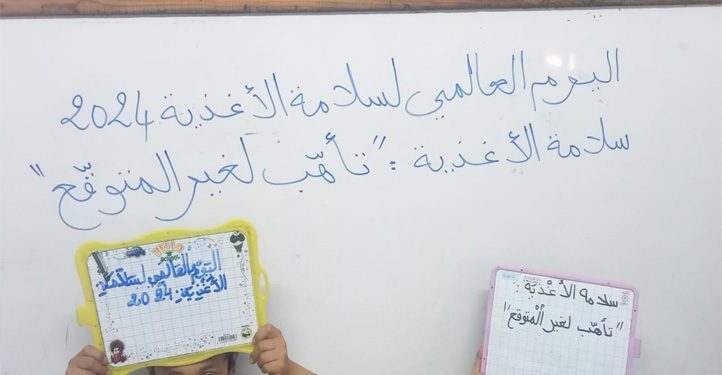 اليوم العالمي لسلامة الأغذية 2024
سلامة الأغذية : "تأهّب لغير المتوقّع"
HELLO
اليوم العالمي لسلامة
الأغذية 2024
سلامة الأغْذيَة :
"تأهّب لغير الْمتوقع"